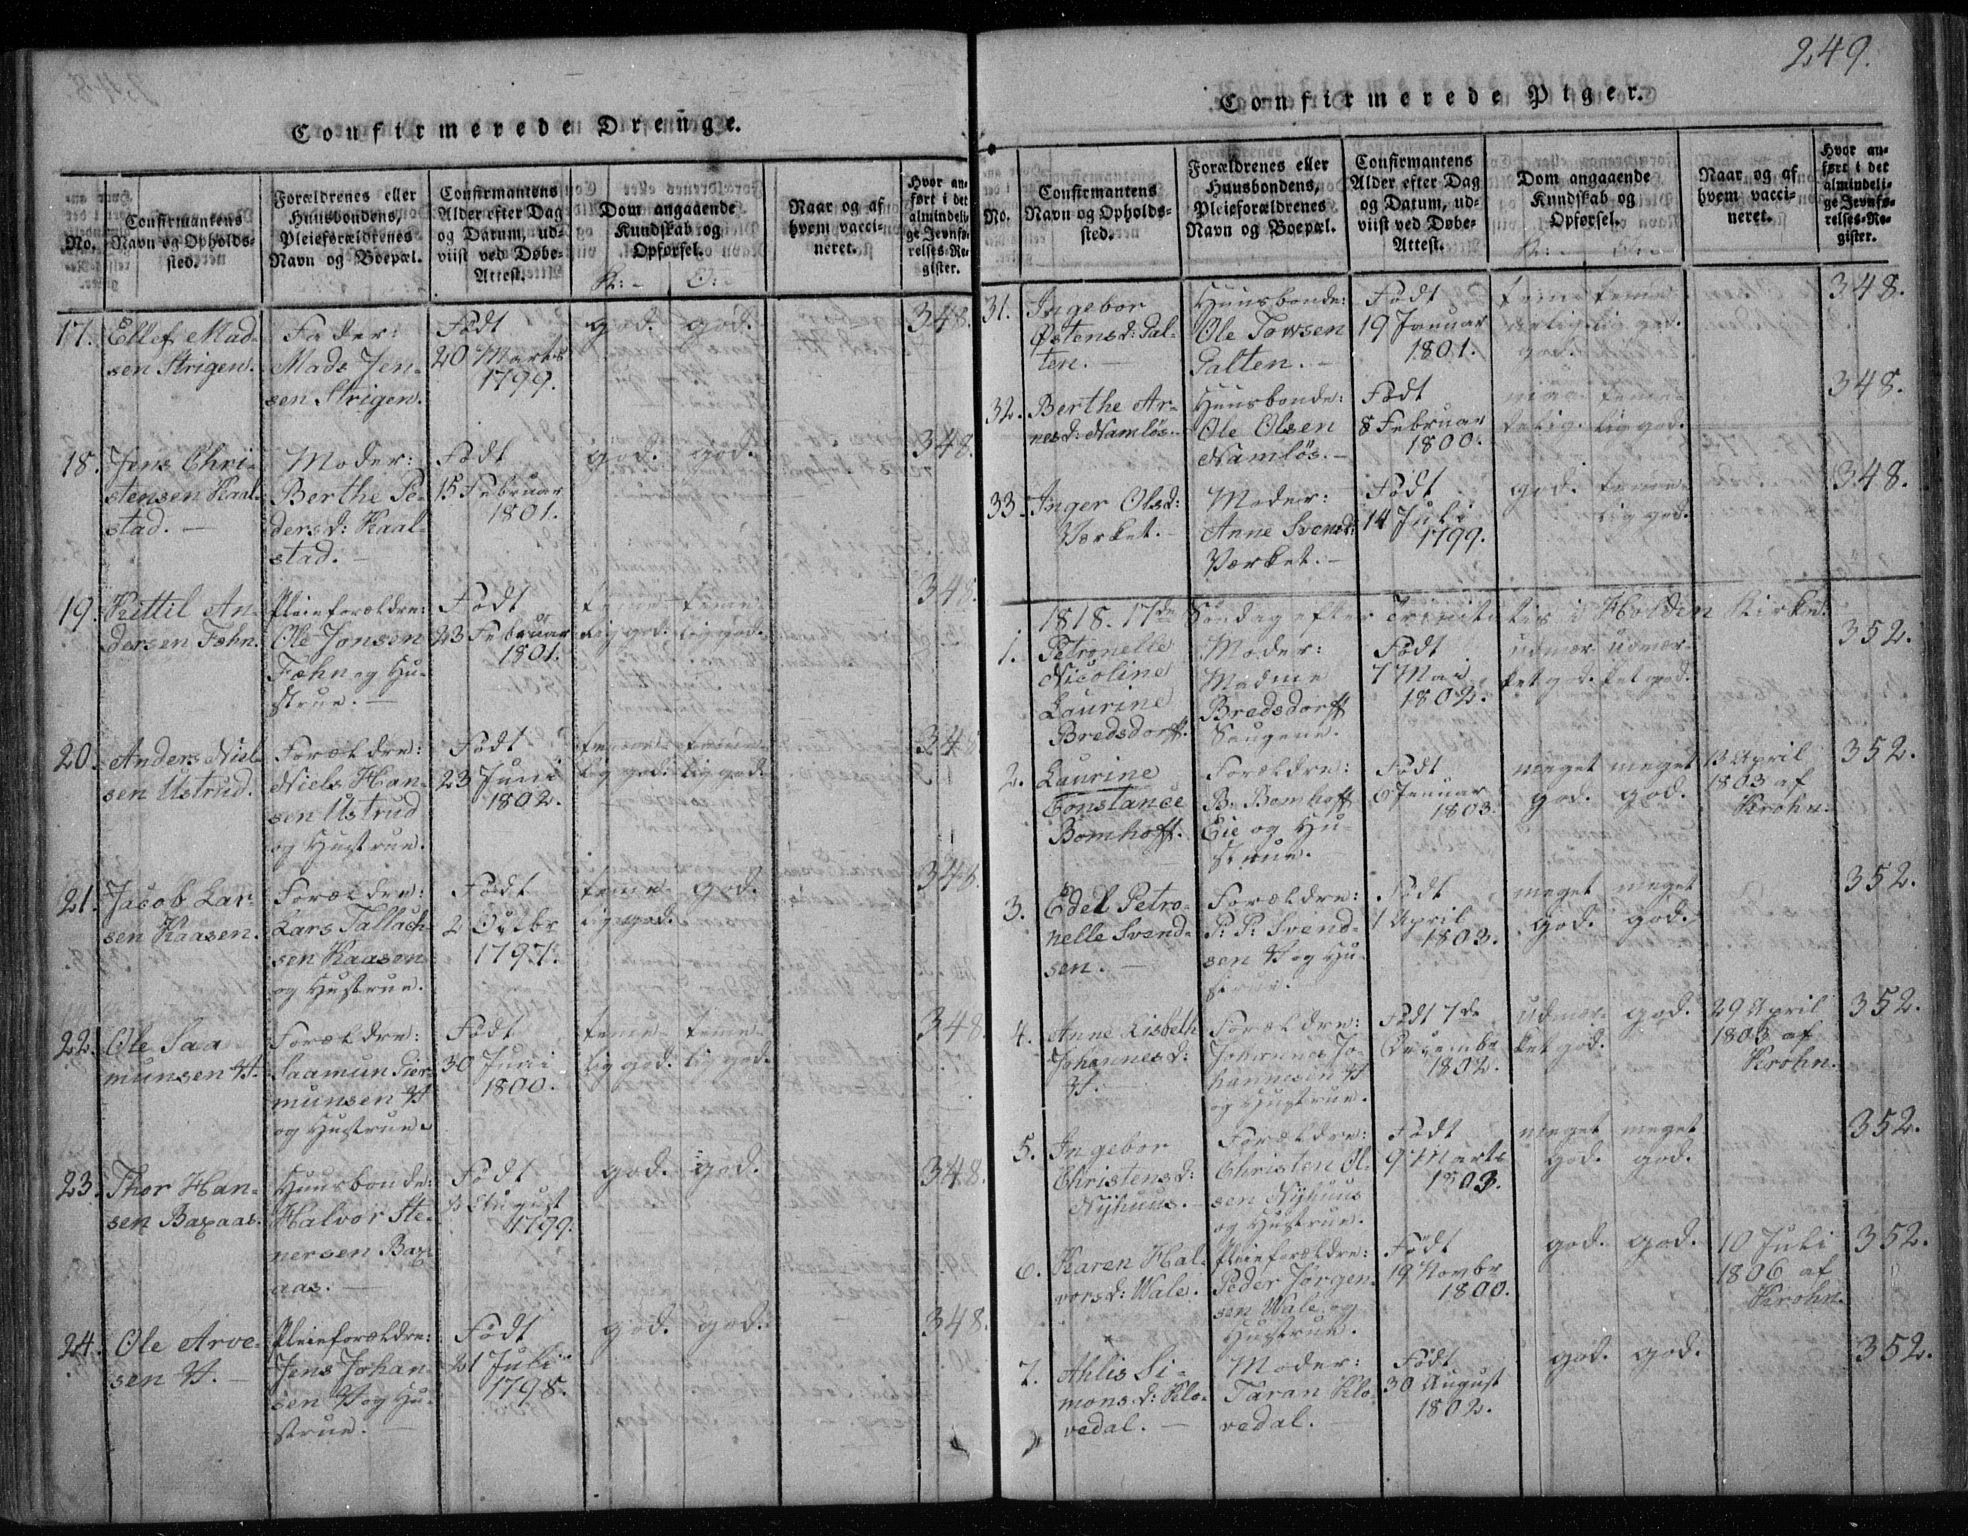 249.
Confirmerede Drenge.
No.
Confirmantens
Navn og Opholds-
sted.
Forældrenes eller
Huusbondens,
Pleieforældrenes
Navn og Boepæl.
Confirmantens
Alder efter Dag
og Datum, ud-
viist ved Døbe-
Attest.
Dom angaaende
Kundskab og
Opførsel.
K: - O: -
Naar og af
hvem vacci-
neret.
Hvor an-
ført i det
almindeli-
ge Jevnfø-
relses-Re-
gister.
17.
Ellef Mad-
sen Strigen.
Fader:
Mads Jen-
sen Strigen.
Født
20 Marts
1799.
god. god.
348.
18.
Jens Chri-
stensen Kaal-
stad. —
Moder:
Berthe Pe-
dersd: Kaal-
stad. —
Født
15 Februar
1801.
god. god.
348.
19.
Kittil An-
dersen Fehn.
Pleieforældre:
Ole Jonsen
Fæhn og Hu-
strue. —
Født
23 Februar
1801.
teme- teme-
lig god. lig god.
348
20.
Anders Niel-
sen Ustrud.
Forældre:
Niels Han-
sen Ustrud
og Hustrue.
Født
23 Juni
1802.
teme- teme-
lig god. lig god.
348
21.
Jacob Lar-
sen Kaasen.
Forældre:
Lars Tallach-
sen Kaasen
og Hustrue.
Født
2 Octbr
1797.
teme- god.
lig god.
348.
22.
Ole Saa-
munsen V.
Forældre:
Saamun Sier-
munsen V
og Hustrue.
Født
30 Juni
1800.
teme- teme-
lig god. lig god.
348.
23.
Thor Han-
sen Baxaas.
Huusbonde:
Halvor Ste-
nersen Bax-
aas. —
Født
August
1799.
god. god.
348.
24.
Ole Arve-
sen V. —
Pleieforældre:
Jens Johan-
sen V og Hu-
strue. —
Født
21 Juli
1798.
god. god.
348.
Confirmerede Piger.
No.
Confirmantens
Navn og Opholds-
sted.
Forældrenes eller
Huusbondens,
Pleieforældrenes
Navn og Boepæl.
Confirmantens
Alder efter Dag
og Datum, ud-
viist ved Døbe-
Attest.
Dom angaaende
Kundskab og
Opførsel.
K: - O: -
Naar og af
hvem vacci-
neret.
Hvor an-
ført i det
almindeli-
ge Jevnfø-
relses-Re-
gister.
31.
Ingebor
Østensd: Gal-
ten. —
Huusbonde:
Ole Towsen
Galten. —
Født
19 Januar
1801.
teme-
lig god.
god.
348.
32.
Berthe Ar-
nesd: Namløs.
Huusbonde:
Ole Olsen
Namløs. —
Født
8 Februar
1800.
maa- teme-
delig. lig god.
348.
33.
Inger Olsd:
Værket. —
Moder:
Anne Svensd:
Værket. —
Født
14 Juli
1799.
god. teme-
lig god.
348.
1818. 17de Søndag efter Trinitatis i Holden Kirke.
1.
Petronelle
Nicoline
Laurine
Bredsdorff.
Moder:
Madme
Bredsdorff
Saugene.
Født
7 Mai
1802.
udmær- udmær-
ket god. ket god.
352.
2.
Laurine
Constance
Bomhoff.
Forældre:
B. Bomhoff
Eie og Hu-
strue.
Født
6 Januar
1803.
meget meget
god. god.
13 April
1803 af
Krohn.
352.
3.
Edel Petro-
nelle Svend-
sen. —
Forældre:
P: P: Svend-
sen V og Hu-
strue. —
Født
1 April
1803.
meget meget
god. god.
352.
4.
Anne Lisbeth
Johannesd:
V.
Forældre:
Johannes Jo-
hannesen V
og Hustrue.
Født 7de
Decembr
1802.
udmær- god.
ket god.
29 April
1803 af
Krohn.
352.
5.
Ingebor
Christensd:
Nyhuus. —
Forældre:
Christen Ol-
sen Nyhuus
og Hustrue.
Født
9 Marts
1803.
meget meget
god. god.
352.
6.
Karen Hal-
vorsd: Wale.
Pleieforældre:
Peder Jørgen-
sen Wale og
Hustrue.
Født
19 Novbr
1800.
god. god.
10 Juli
1806 af
Krohn.
352.
7.
Ahlis Si-
monsd: Klo-
vedal. —
Moder:
Taran Klo-
vedal. —
Født
30 August
1802.
god. god.
352.